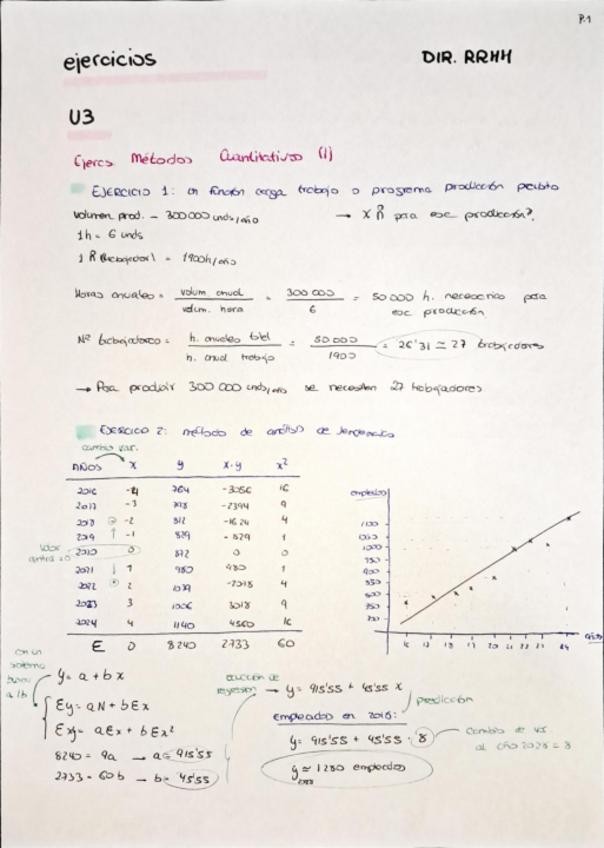 P.1
ejercicios DIR. RRHH
U3
Ejercs Métodos Cuantitativos (1)
EJERCICIO 1: en función carga trabajo o programa producción previsto
volumen prod. - 300 000 unds/año → x R para esc producción?
1h = 6 unds
1 R (trabajador) = 1900h/año
Horas anuales = volum anual / volum. hora = 300 000 / 6 = 50 000 h. necesarias para esc producción
Nº trabajadores = h. anuales total / h. anual trabajo = 50 000 / 1900 = 26'31 ≃ 27 trabajadores
→ Para producir 300 000 unds/año se necesitan 27 trabajadores
EJERCICIO 2: método de análisis de
cambio var.
AÑOS x y x·y x²
2016 -4 764 -3056 16
2017 -3 798 -2394 9
2018 -2 812 -1624 4
2019 -1 829 -829 1
valor central = 0
2020 0 872 0 0
2021 1 980 980 1
2022 2 1039 -2078 4
2023 3 1006 3018 9
2024 4 1140 4560 16
E 0 8240 2733 60
empleados
1100
1050
1000
950
900
850
años
con un sistema busco a/b
y = a + bx
Ey = aN + bEx
Exy = aEx + bEx²
8240 = 9a → a = 915'55
2733 = 60b → b = 45'55
ecuación de regresión → y = 915'55 + 45'55 x
predicción
empleados en 2028:
y = 915'55 + 45'55 · 8
cambio de var al año 2028 = 8
y ≃ 1280 empleados
2028